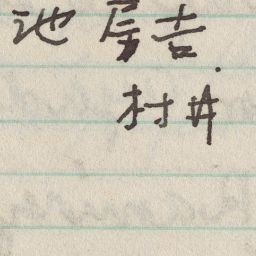 池 居吉
村井